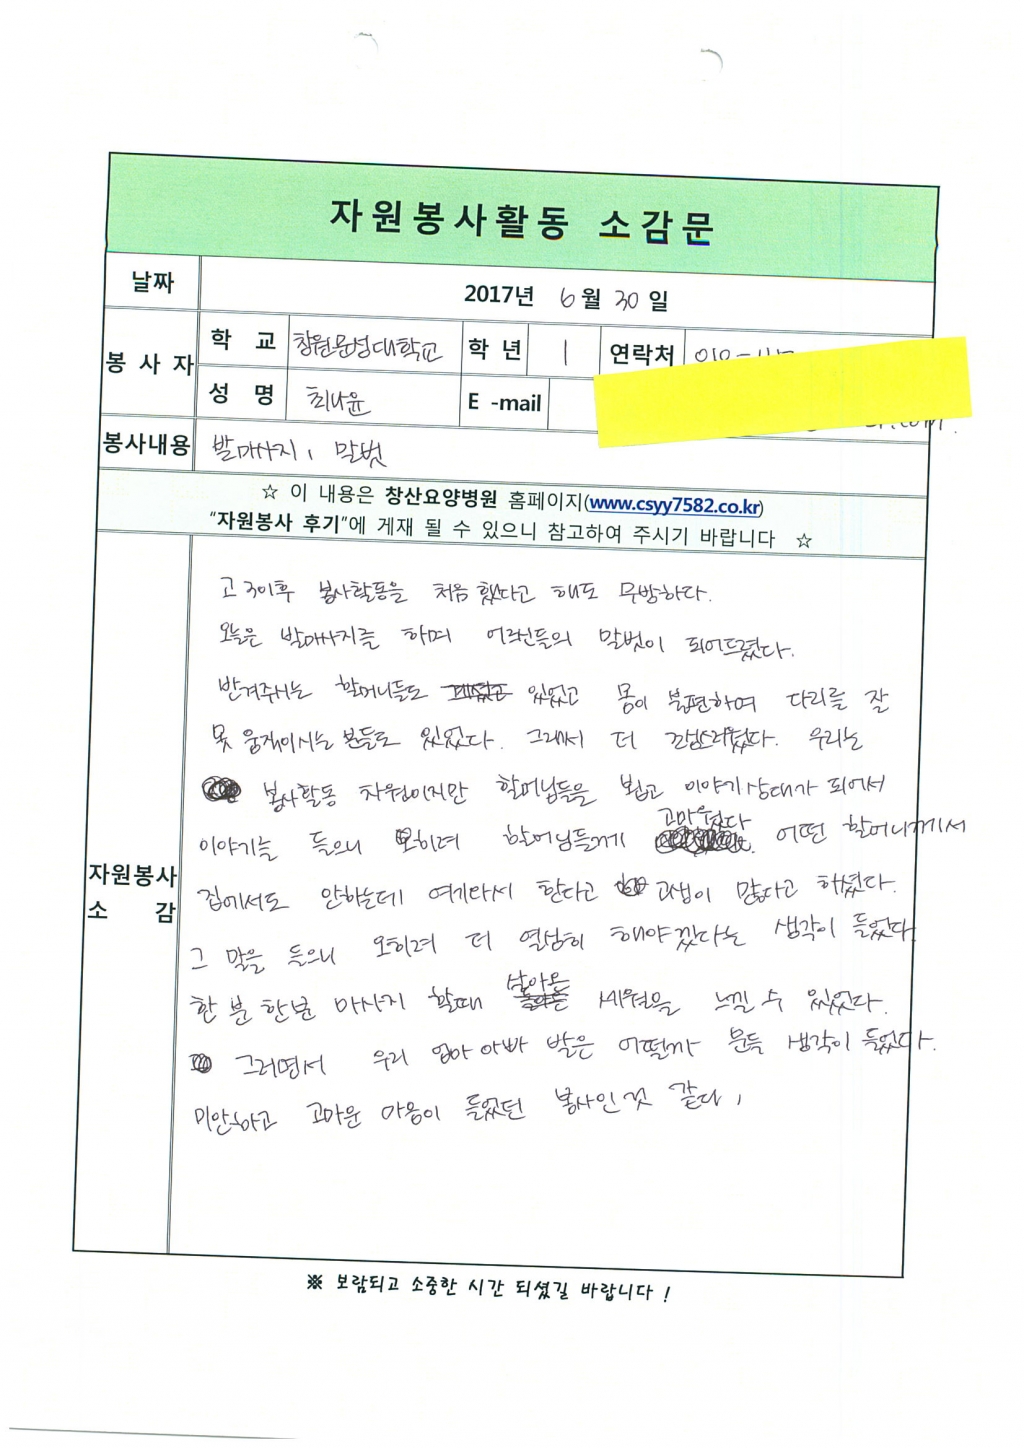 자원봉사활동 소감문
날짜 2017년 6월 30일
봉사자 학 교 창원문성대학교 학년 1 연락처 010-
성 명 최나윤 E -mail .com.
봉사내용 발마사지, 말벗
☆ 이 내용은 창산요양병원 홈페이지(www.csyy7582.co.kr)
"자원봉사 후기"에 게재 될 수 있으니 참고하여 주시기 바랍니다 ☆
자원봉사
소 감
고3이후 봉사활동을 처음 했다고 해도 무방하다.
오늘은 발마사지를 하며 어르신들의 말벗이 되어드렸다.
반겨주시는 할머니들도 있었고 몸이 불편하여 다리를 잘
못 움직이시는 분들도 있었다. 그래서 더 조심스러웠다. 우리는
봉사활동 차원이지만 할머님들을 뵙고 이야기상대가 되어서
이야기를 들으니 오히려 할머님들께 고마웠다. 어떤 할머니께서
집에서도 안하는데 여기와서 한다고 고생이 많다고 하셨다.
그 말을 들으니 오히려 더 열심히 해야겠다는 생각이 들었다.
한 분 한분 마사지 할때 살아온 세월을 느낄 수 있었다.
그러면서 우리 엄마 아빠 발은 어떨까 문득 생각이 들었다.
미안하고 고마운 마음이 들었던 봉사인것 같다.
※ 보람되고 소중한 시간 되셨길 바랍니다 !